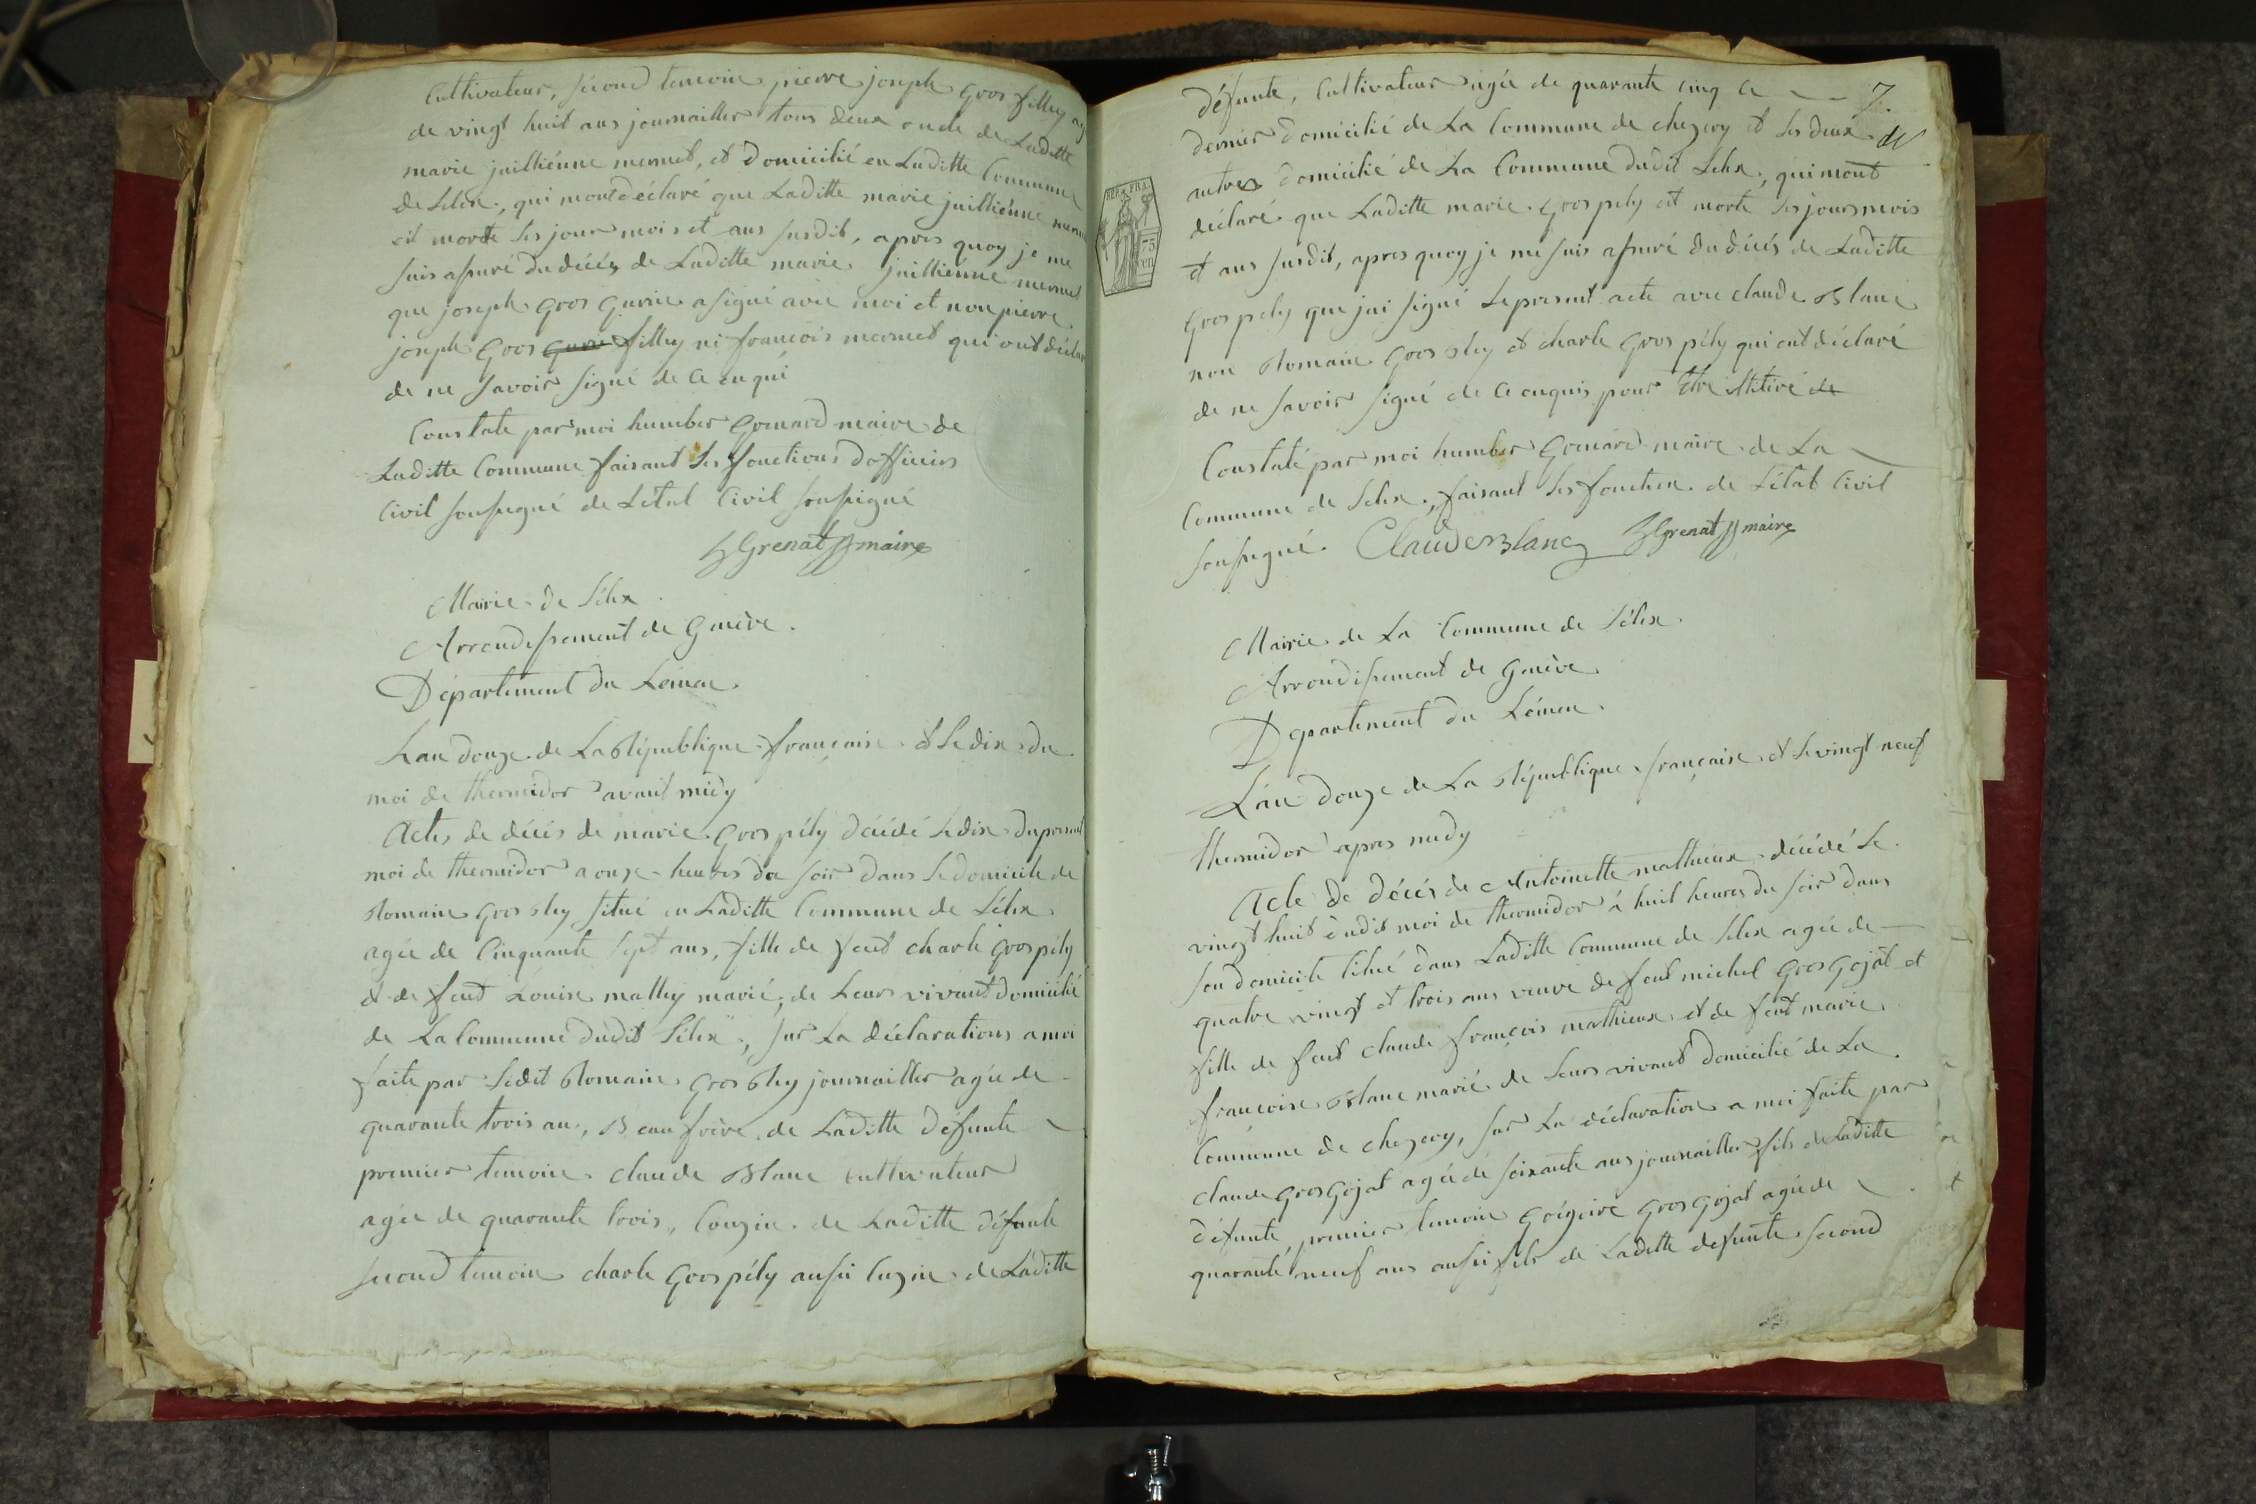 Cultivateur, second temoin pierre joseph Gros filley
de vingt huit ans journailler tous deux oncle de Laditte
marie juilliénne mermet, et domicilié en Laditte Commune
de Selex, qui mont déclaré que Laditte marie juilliénne
est morte les jour mois et ans susdit, apres quoy je me
suis assuré du décés de Laditte marie juilliénne mermet
que joseph Gros Gurin a signé avec moi et non pierre
joseph Gros filley ni francois mermet qui ont déclaré
de ne savoir signé de ce enqui
Constate par moi humber Grenard maire de
Laditte Commune faisant les fonctions dofficiers
Civil soussigné de Létat Civil soussigné
hGrenat maire
Mairie de Sélex
Arrondissement de Genève.
Département du Leman.
Lan douze de La République française et Le dix du
moi de thermidor avant midy
Actes de décés de marie Gros pély décédé Le dix du present
moi de thermidor a onze heures du soir dans Le domicile de
Romain Gros Bley situé en Laditte Commune de Sélex
agée de Cinquante sept ans, fille de feut charle Gros pély
et de feut Louise mathey marié, de Leurs vivant domicilié
de La Commune dudit Sélex, sur La déclarations a moi
faite par Ledit Romain Gros Bley journailler agée de
quarante trois an, Beau frère de Laditte défunte
premier temoin claude Blanc cultivateur
agée de quarante trois, Couzin de Laditte défunte
second temoin charle Gros pély aussi Cuzin de Laditte
défunte, Cultivateur agée de quarante cinq Ce
7.
dernier domicilié de La Commune de chezery et Les deux
autres domicilié de La Commune dudit Selex, qui mont
déclaré que Laditte marie Gros pely est morte Les jours mois
REP. FRA.
75
et ans susdit, apres quoy je me suis assuré du décés de Laditte
Gros pely que jai signé Le present acte avec claude Blanc
non Romain Gros Bley et charle Gros pély qui ont déclaré
de ne savoir signé de ce enquis pour
Constaté par moi humber Grenard maire de La
Commune de Selex, faisant Les fonction de Létat Civil
soussigné. Claude Blanc hGrenat maire
Mairie de La Commune de Sélex.
Arrondissement de Genève
Departement du Léman.
Lan douze de La République française et Le vingt neuf
thermidor apres midy
Acte de décés de Antoinette mathieux décédé Le
vingt huit dudit moi de thermidor à huit heures du soir dans
son domicile situé dans Laditte Commune de Selex agée de
quatre vingt et trois ans veuve de feut michel Gros Gojat et
fille de feut claude françois mathieux et de feut marie
françoise Blanc marié de Leurs vivant domicilié de La
Commune de chezery, sur La déclaration a moi faite par
claude Gros Gojat agée de soixante ans journailler fils de Laditte
défunte, premier temoin Grégoire Gros Gojat agée de
quarante neuf ans aussi fils de Laditte defunte second